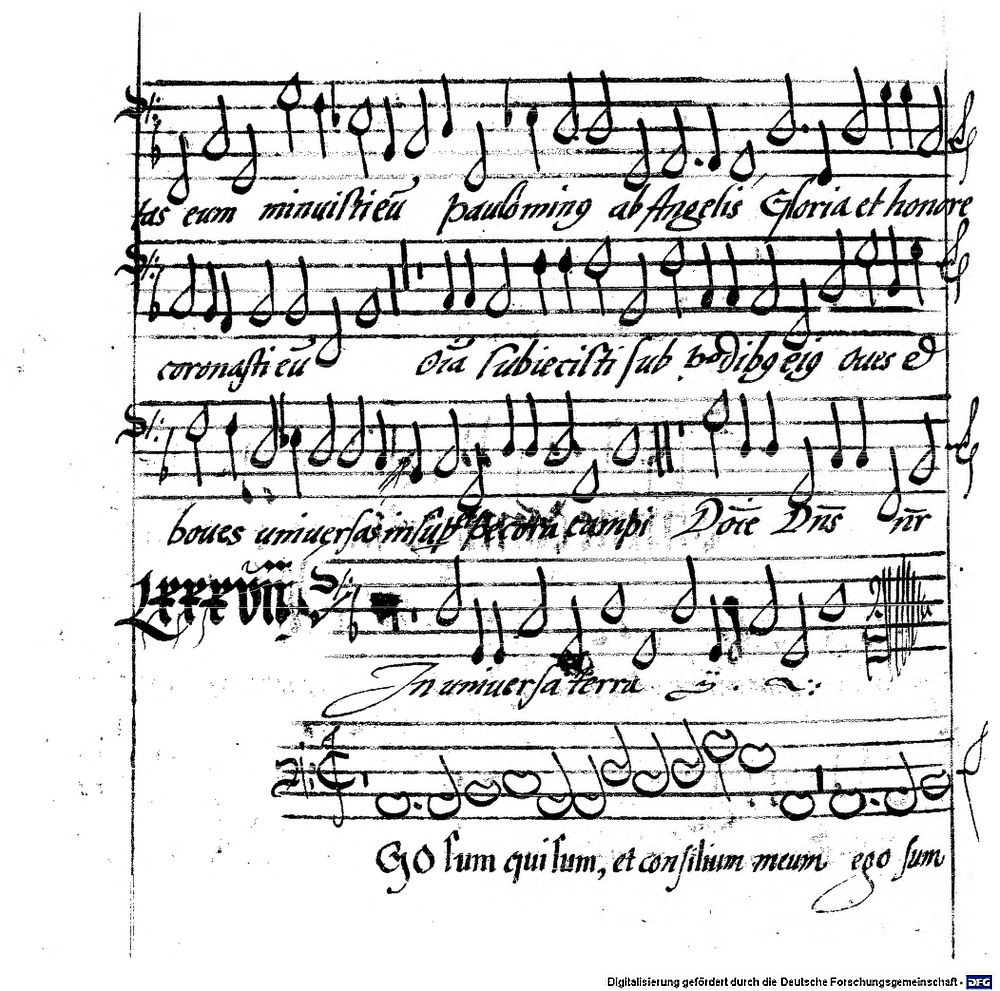 tas eum minuisti eū paulo minꝯ ab Angelis Gloria et honore
coronasti eū Oīa subiecisti sub pedibꝯ eiꝯ Oues et
boues universas insup pecora campi Dn̄s nr̄
LXXXVIII
In universa terra ij.
EGO sum qui sum, et consilium meum ego sum
Digitalisierung gefördert durch die Deutsche Forschungsgemeinschaft - DFG